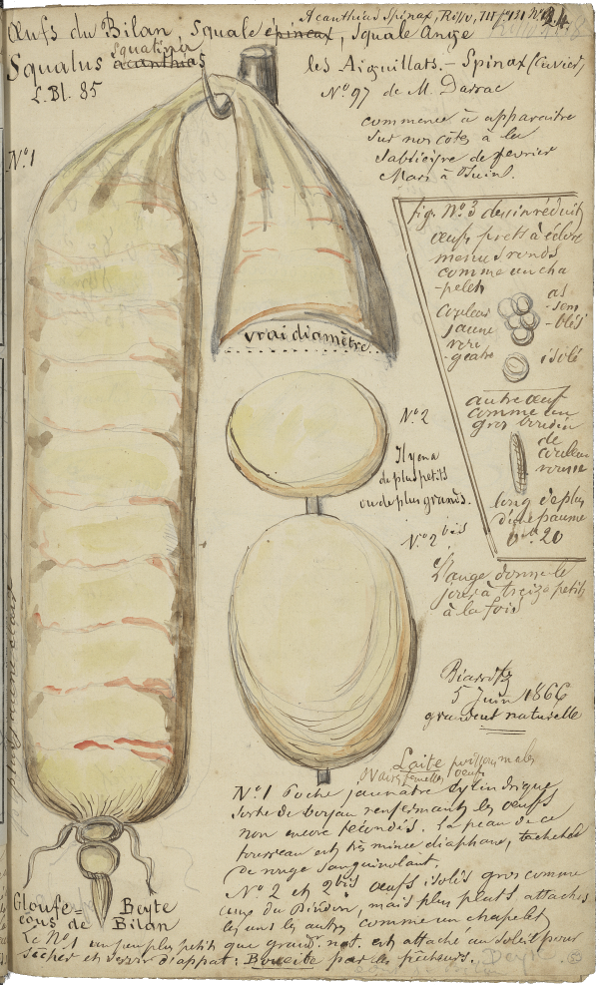 Acanthias Spinax, Risso, III
24
Œufs du Bilan, Squale épineax, Squale Ange
Squatina
Squalus acanthias
les Aiguillats. – Spinax (Cuvier)
L. Bl. 85
N.° 97 de M. Darrac
commence à apparaitre
sur nos côtes à la
de fevrier
Mars à Juin.
N.° 1
fig. N.° 3 dessin réduit
œufs prets à éclore
menus ronds
comme un cha
-pelet
couleur
jaune
verd
-geatre
as-
-sem
-blés
isolé
autre œuf
comme un
gros boudin
de
couleur
rousse
long de plus
d'une paume
0,m 20
vrai diamètre
N.° 2
Il y en a
de plus petits
ou de plus grands.
N.° 2 bis
L'ange donne le
jour à treize petits
à la fois
Biarritz
5 Juin 1866
grandeur naturelle
Laite poissons males
femelles œufs
N.° 1 Poche jaunatre cylindrique,
sorte de boyau renfermant les œufs
non encore fécondés. La peau de ce
fourreau est très mince diaphane, tachetée
de rouge sanguinolant.
N.° 2 et 2 bis œufs isolés gros comme
ceux du Dindon, mais plus plats attachés
les uns les autres comme un chapelet
Gloufe=
cous de
Beyte
Bilan
Le N.° 1 un peu plus petit que grand. nat. est attaché au soleil pour
sécher et servir d'appat: Boueite par les pêcheurs.
Beyte